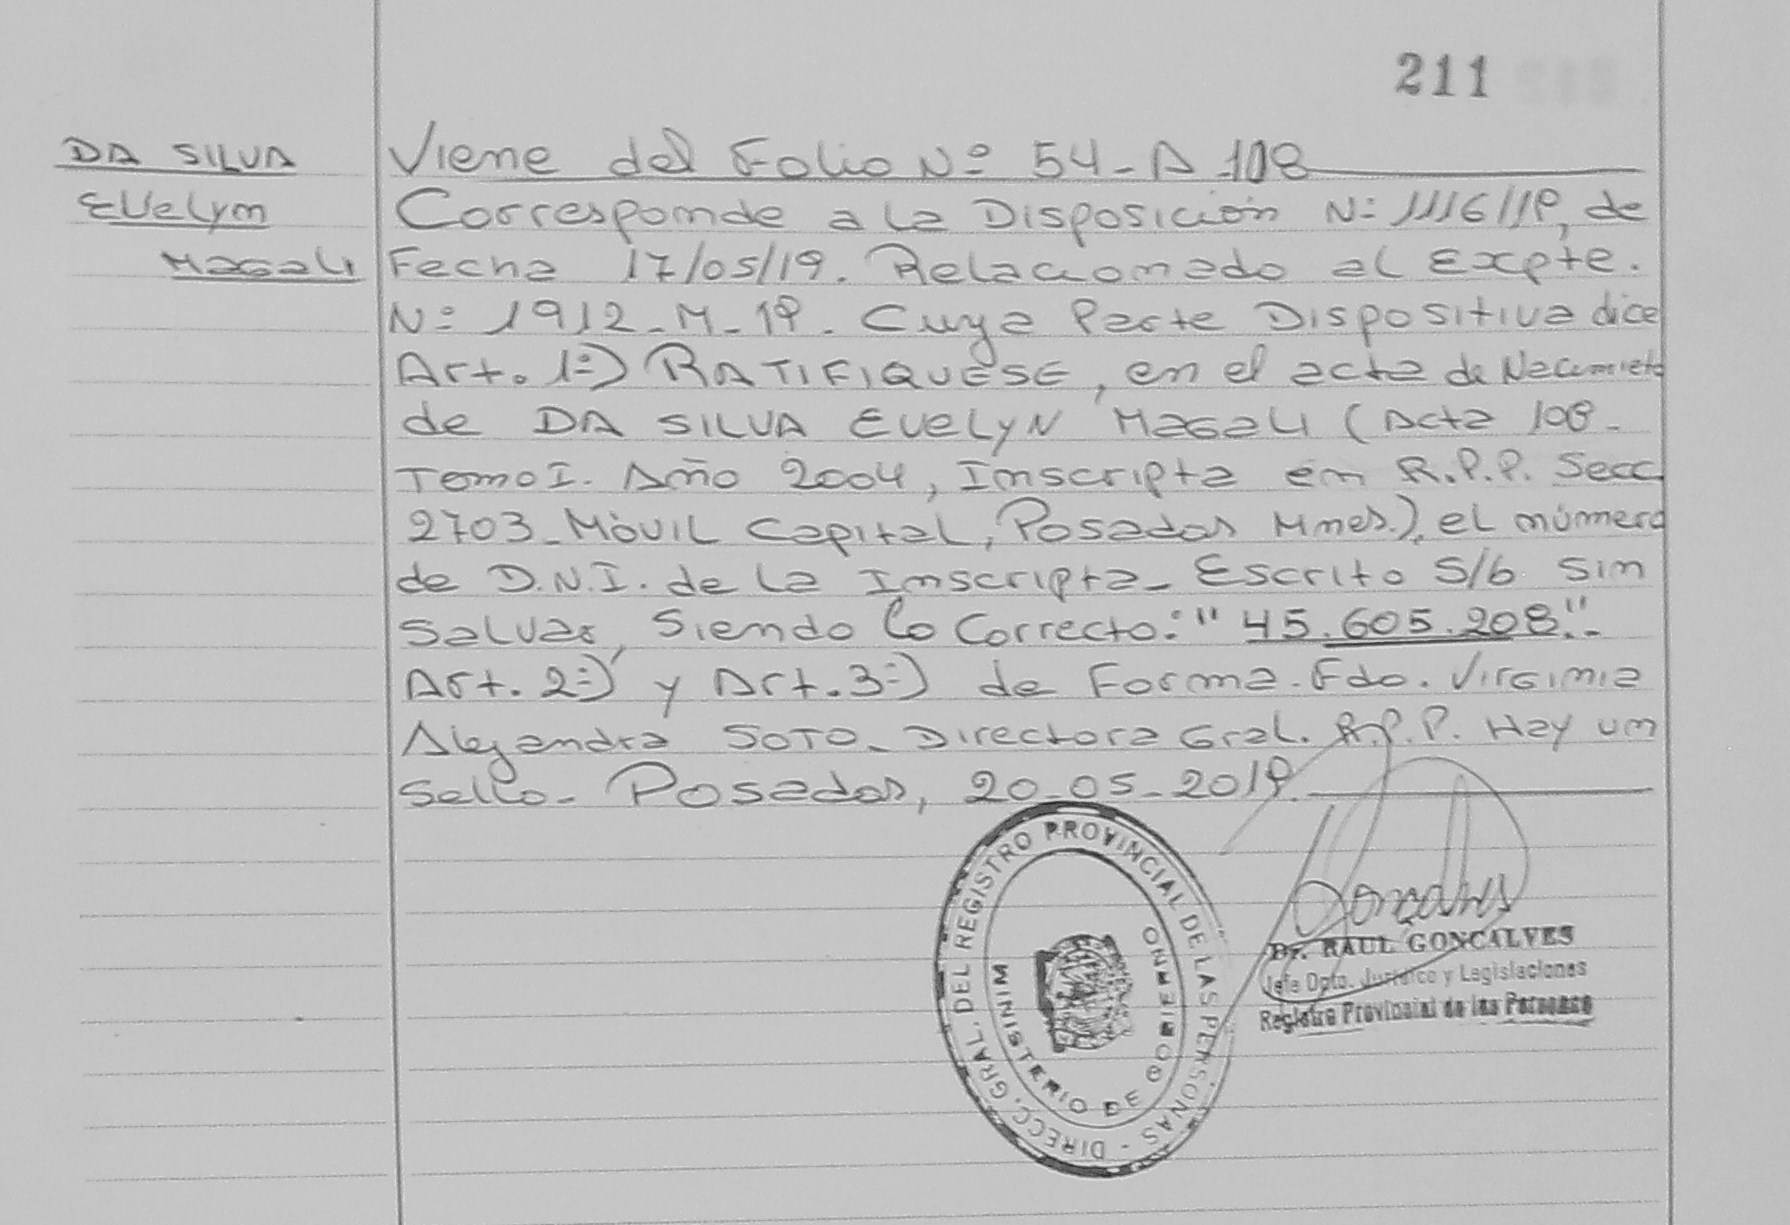 211
DA SILVA
Evelym
Magali
Viene del Folio Nº 54-A 108
Corresponde a la Disposición Nº 1116/19, de
Fecha 17/05/19. Relacionado al Expte.
Nº 1912-M-19. Cuya Parte Dispositiva dice
Art. 1º) RATIFIQUESE, en el acta de Nacimieto
de DA SILVA EVELYN Magali (Acta 108-
Tomo I. Año 2004, Inscripta en R.P.P. Secc
2703-Móvil Capital, Posadas Mnes.), el número
de D.N.I. de la Inscripta- Escrito S/b Sin
Salvar, Siendo lo Correcto: "45.605.208".-
Art. 2º) y Art. 3º) de Forma. Fdo. Virginia
Alejandra SOTO- Directora Gral. R.P.P. Hay un
Sello- Posadas, 20-05-2019.
DIRECC. GRAL. DEL REGISTRO PROVINCIAL DE LAS PERSONAS -
MINISTERIO DE GOBIERNO
Goncalves
Dr. RAUL GONCALVES
Jefe Dpto. Jurídico y Legislaciones
Registro Provincial de las Personas